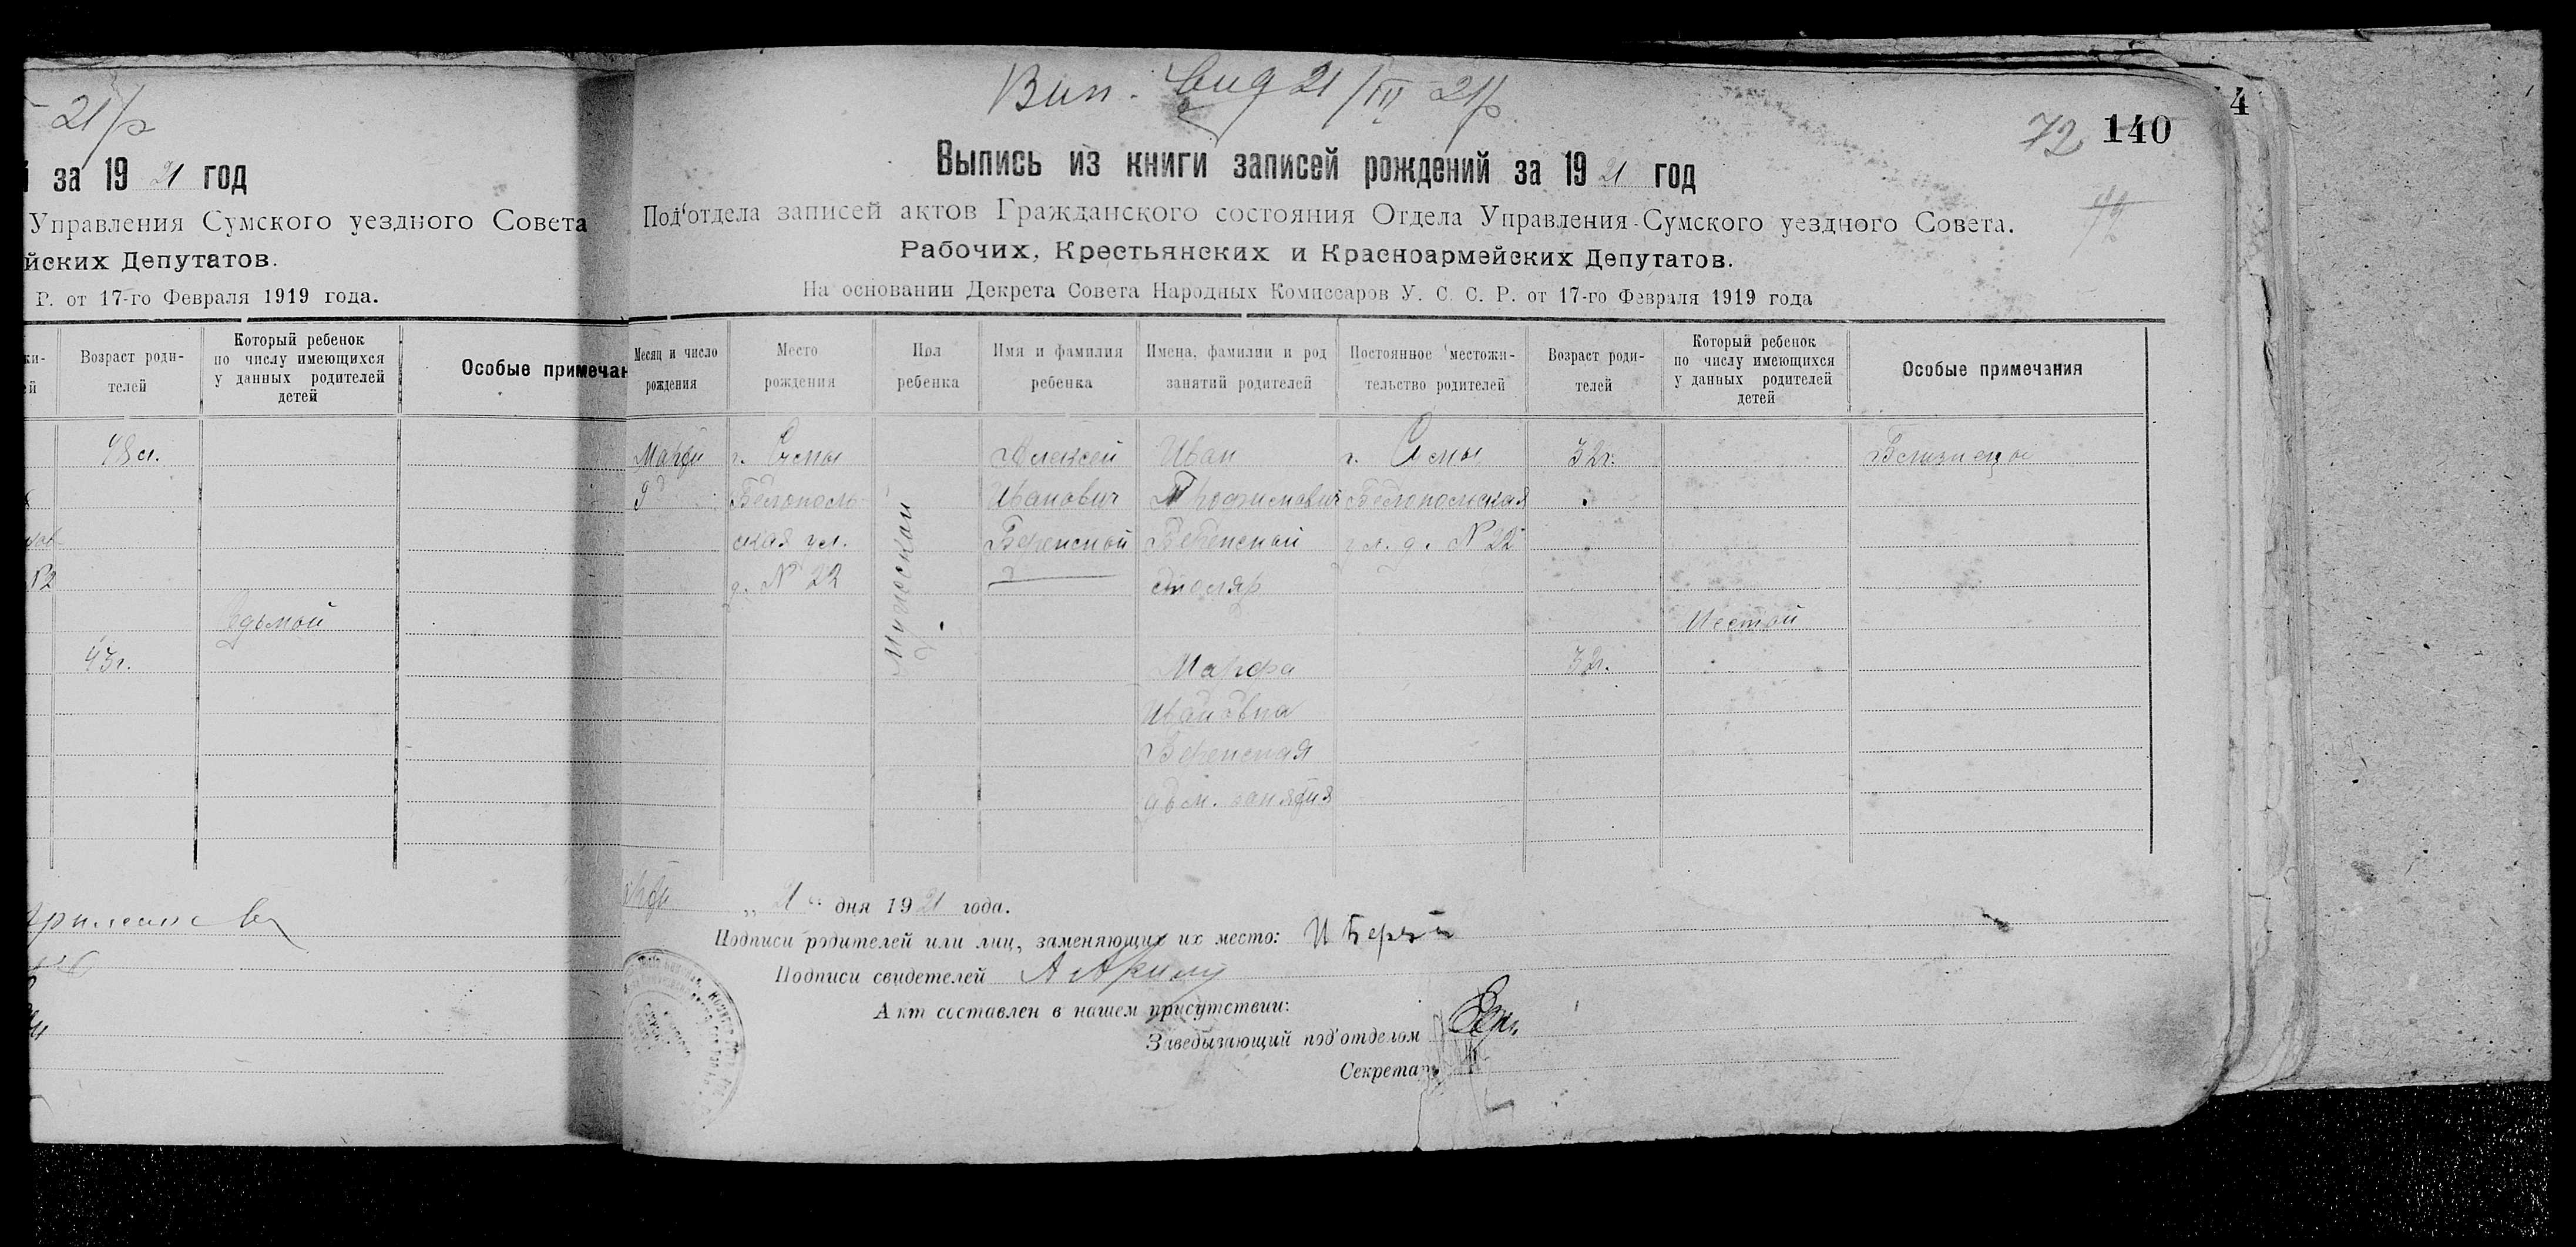 21/р
за 19 21 год
Управления Сумского уездного Совета
йских Депутатов.
Р. от 17-го Февраля 1919 года.
Возраст роди-
телей
Который ребенок
по числу имеющихся
у данных родителей
детей
Особые примечан
48 л.
№2
Седьмой
43 г.
Вип. 21/III 21р
72 140
Выпись из книги записей рождений за 19 21 год
Под'отдела записей актов Гражданского состояния Отдела Управления Сумского уездного Совета.
Рабочих, Крестьянских и Красноармейских Депутатов.
На основании Декрета Совета Народных Комиссаров У. С. С. Р. от 17-го Февраля 1919 года
Месяц и число
рождения
Место
рождения
Пол
ребенка
Имя и фамилия
ребенка
Имена, фамилии и род
занятий родителей
Постоянное местожи-
тельство родителей
Возраст роди-
телей
Который ребенок
по числу имеющихся
у данных родителей
детей
Особые примечания
Марта
9
г. Сумы
Белополь-
ская ул.
д. № 22
Мужеской
Алексей
Иванович
Иван
Трофимович
столяр
Марфа
Ивановна
дом. занятия
г. Сумы
Белопольская
ул. д. № 22
32 г.
32 г.
Шестой
Близнецы
„ 21 “ дня 19 21 года.
Подписи родителей или лиц, заменяющих их место:
Подписи свидетелей
Акт составлен в нашем присутствии:
Заведывающий под'отделом
Секретарь